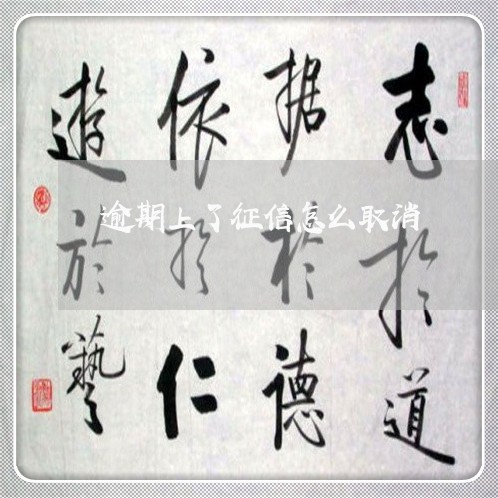 志於道
据於德
依於仁
遊於藝
逾期上了征信怎么取消